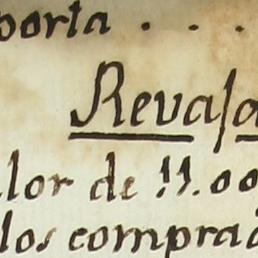 porta . . .
Revaja
alor de 11.00
los comprad